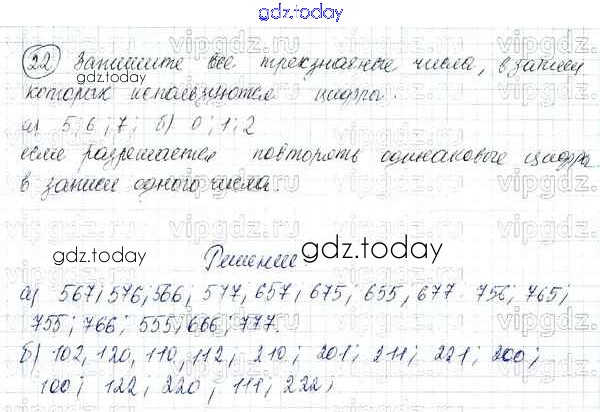 gdz.today
22 Запишите все трехзначные числа, в записи
которых используются цифры:
а) 5; 6; 7; б) 0; 1; 2
если разрешается повторять одинаковые цифры
в записи одного числа.
gdz.today
gdz.today
Решение
а) 567; 576; 566; 577, 657; 675; 655, 677 756; 765;
755; 766; 555; 666; 777.
б) 102, 120, 110, 112; 210; 201; 211; 221; 200;
100; 122; 220; 111; 222;
gdz.today